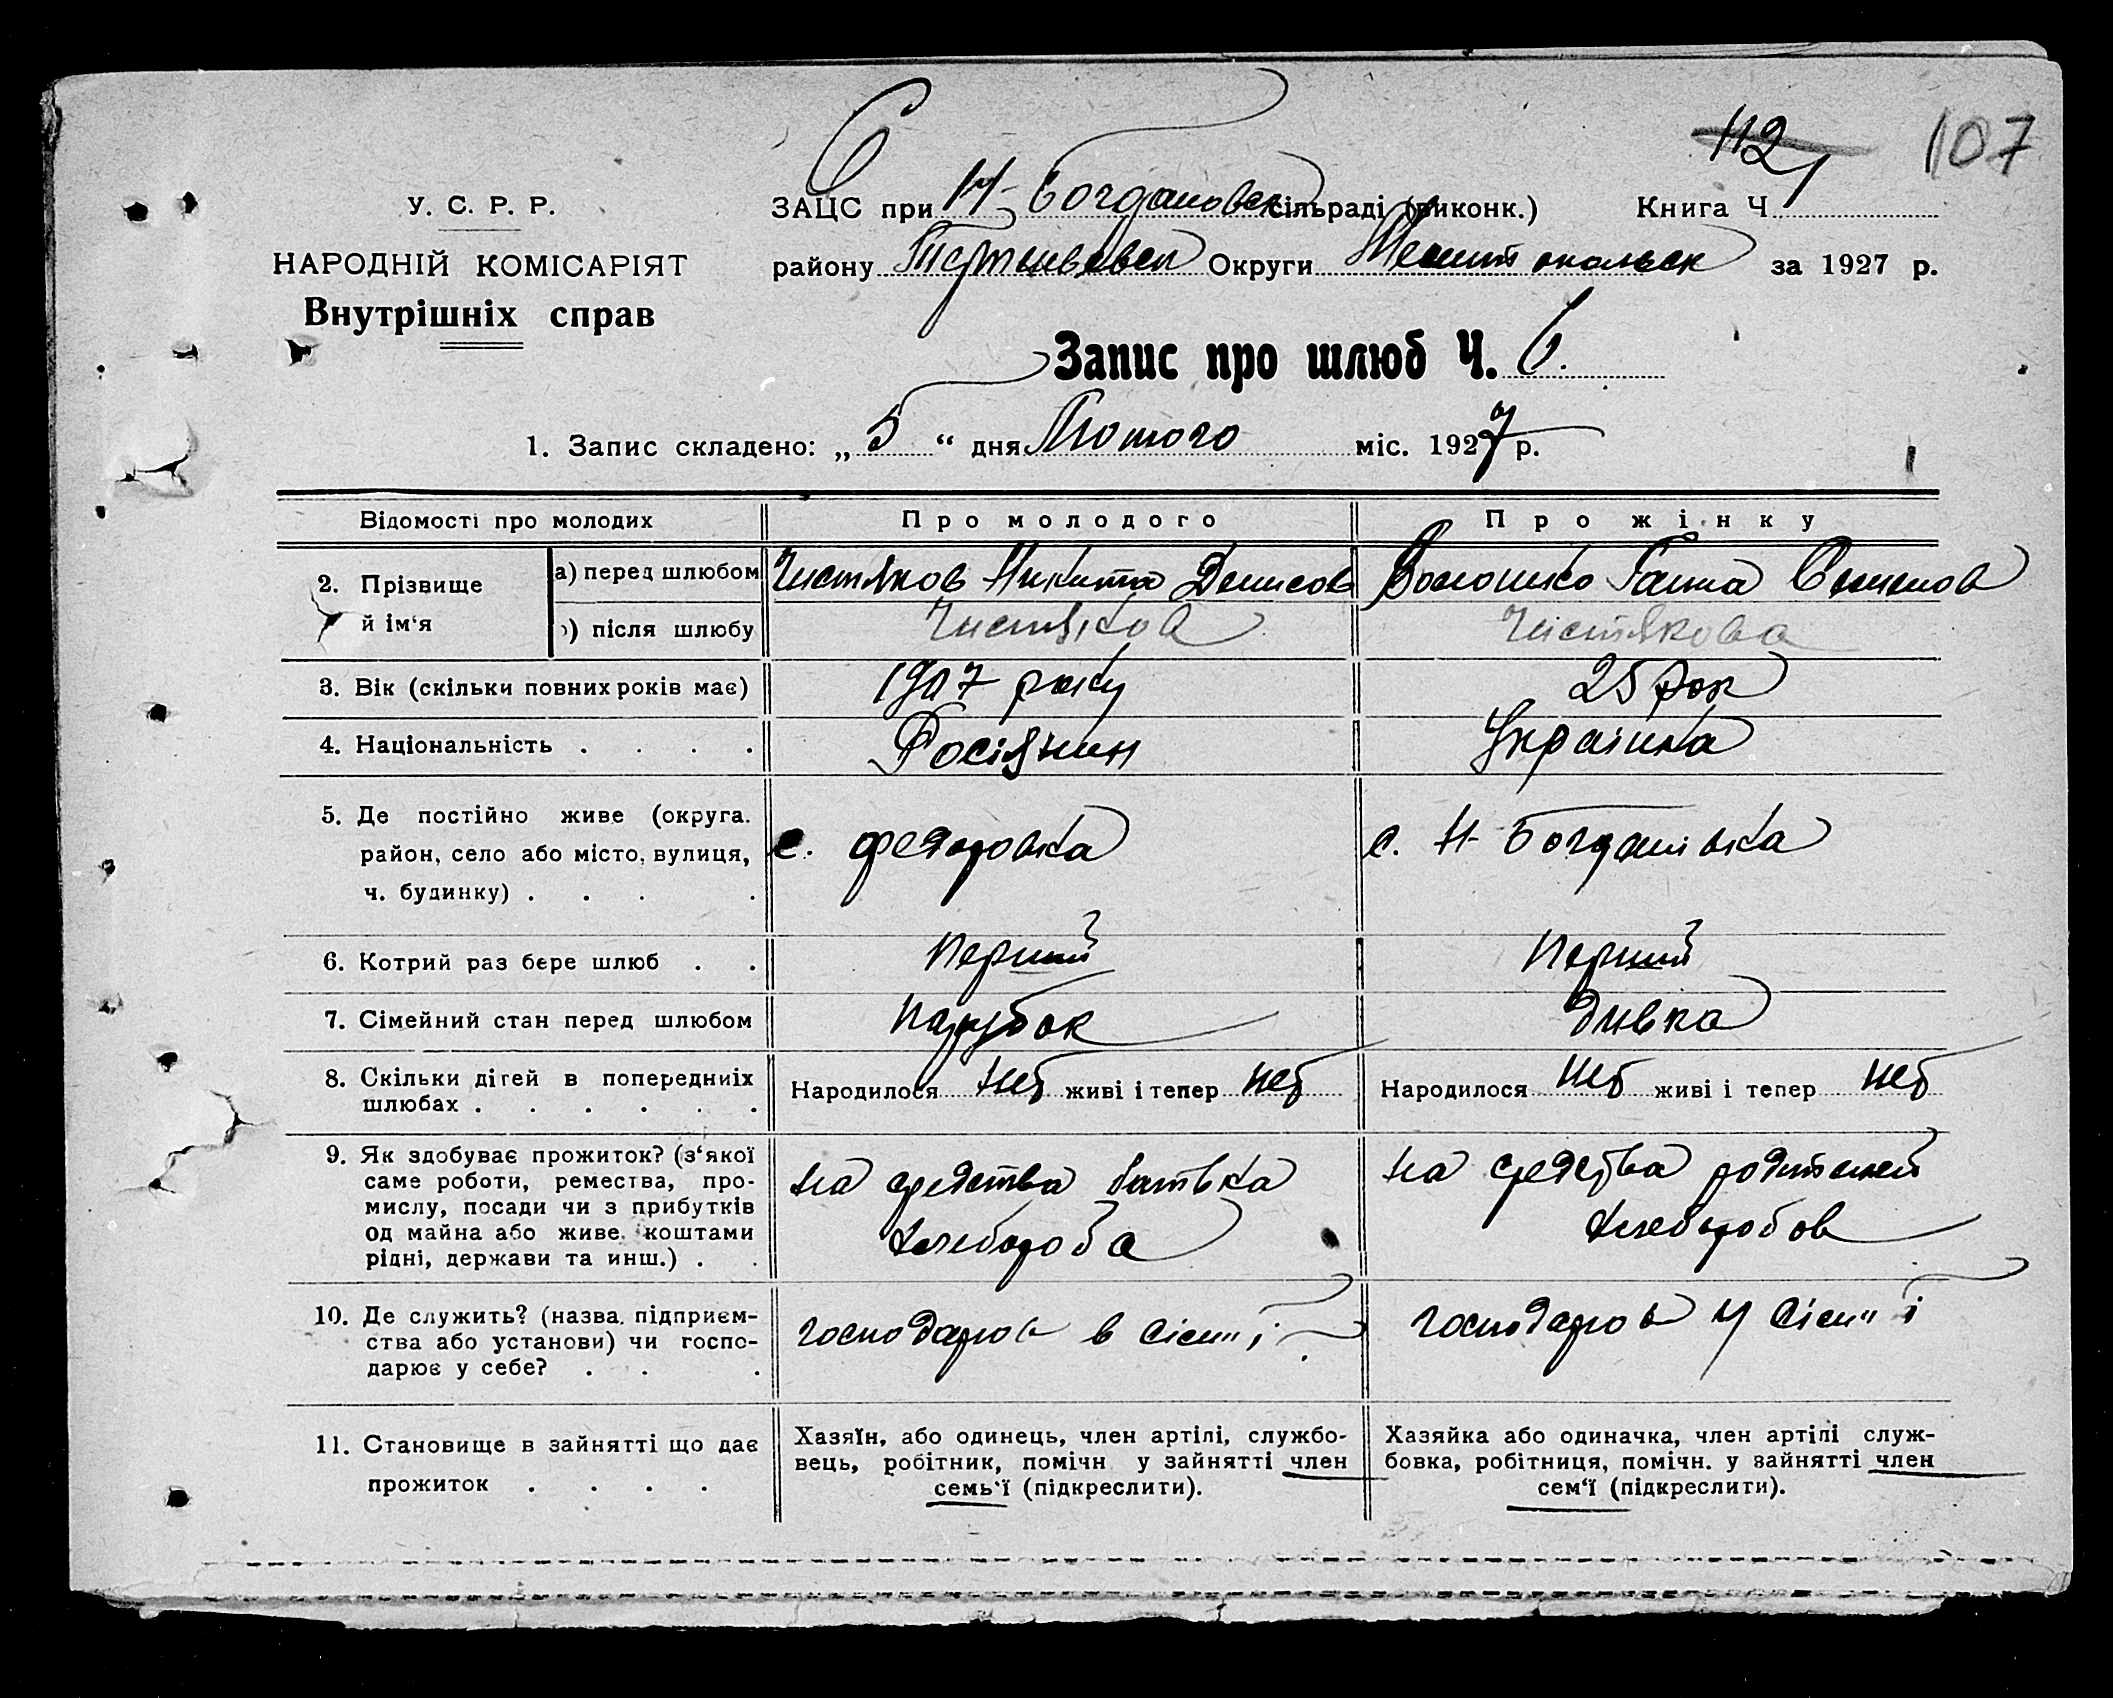 6
112
107
У. С. Р. Р.
НАРОДНІЙ КОМІСАРІЯТ
Внутрішніх справ
ЗАЦС при Н-Богдановск сільраді (виконк.) Книга Ч 1
району Округи за 1927 р.
Запис про шлюб Ч. 6.
1. Запис складено: „ 5 “ дня Лютого міс. 1927 р.
Відомості про молодих Про молодого Про жінку
2. Прізвище й ім‘я
а) перед шлюбом Чистяков Никита Денисов Волошко Ганна
) після шлюбу Чистяков Чистякова
3. Вік (скільки повних років має) 1907 року 25 рок
4. Національність . . . . Росіянин Українка
5. Де постійно живе (округа.
район, село або місто, вулиця, с. Федоровка с. Н-Богданівка
ч. будинку) . . . .
6. Котрий раз бере шлюб . . Перший Перший
7. Сімейний стан перед шлюбом Парубок Дивка
8. Скільки дітей в попередниіх Народилося неб живі і тепер неб Народилося неб живі і тепер неб
шлюбах . . . . . .
9. Як здобуває прожиток? (з‘якої
саме роботи, ремества, про-
мислу, посади чи з прибутків
од майна або живе коштами
рідні, держави та инш.) . .
на средства батька
хлебороба
на средства родителей
хлеборобов
10. Де служить? (назва підприєм-
ства або установи) чи госпо-
дарює у себе? . . .
господарюв в сісмиі
господарюв у сісмиі
11. Становище в зайнятті що дає
прожиток . . . .
Хазяїн, або одинець, член артілі, службо-
вець, робітник, помічн у зайнятті член
семь‘ї (підкреслити).
Хазяйка або одиначка, член артілі служ-
бовка, робітниця, помічн. у зайнятті член
сем‘ї (підкреслити).